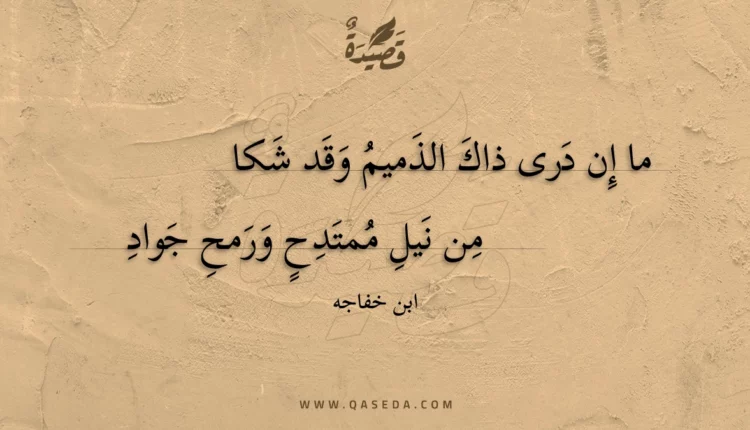 قَصِيْدَةٌ
ما إِن دَرى ذاكَ الذَميمُ وَقَد شَكا
مِن نَيلِ مُمتَدِحٍ وَرَمحِ جَوادِ
ابن خفاجه
WWW.QASEDA.COM